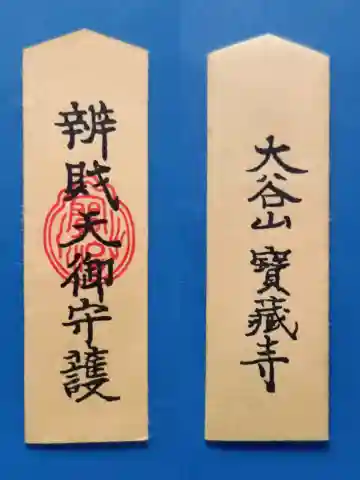 辨財天御守護
大谷山寶藏寺